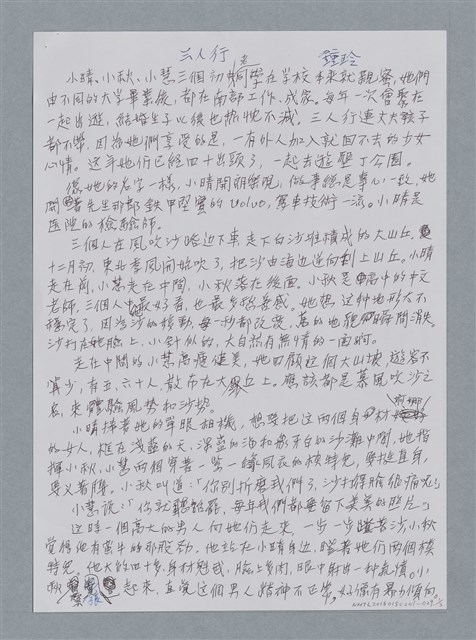 三人行
鍾玲
小晴、小秋、小慧三個初中老同學在學校本來就親密，她們
由不同的大学畢業後，都在南部工作、成家。每年一次會聚在
一起出遊，結婚生子以後也愉悅不減。三人行連丈夫孩子
都不帶，因為她們享受的是，一有外人加入就回不去的少女
心情。這年她们已經四十出頭了，一起去遊墾丁公園。
像她的名字一样，小晴開朗樂觀，做事總是專心一致，她
開著先生那部鉄甲堅實的Volvo，駕車技術一流。小晴是
医院的檢驗師。
三個人在風吹沙路边下車，走下白沙堆積成的大山丘。
十二月初，東北季風開始吹了，把沙由海边逆向刮上山丘。小晴
走在前，小慧走在中間，小秋落在後面。小秋是高中的中文
老師，三個人中最好看，也最多愁善感。她想，这种地形太不
穩定了，因為沙的移動，每一秒都改变，舊的地貌瞬間消失。
沙打在她臉上，小針似的，大自然有無情的一面啊。
走在中間的小慧高瘦健美，她四顧這個大山坡，遊客不
算少，有五、六十人，散布在大沙丘上。應該都是慕風吹沙之
名，來體驗風势和沙势。
小晴捧著她的單眼相機，想要把这兩個身材婀娜
的女人，框在淺藍的天、深藍的海和帶米白的沙灘中間，她指
揮小秋、小慧兩個穿著一紫一綠風衣的模特兒，要挺直身，
要义著腰。小秋叫道：「你别折磨我們了，沙打得臉很痛呢！」
小慧說：「你就聽她罷，每年我們都要留下美美的照片。」
这時一個高大的男人向她们走來，一步一步踏著沙，小秋
覺得他有蠻牛的那股劲。他站在小晴身边，瞪著她们兩個模
特兒。他大約四十多，身材魁武，臉上多肉，眼中射出一种敵情。小
秋緊張起來，直覺这個男人精神不正常，好像有暴力傾向。